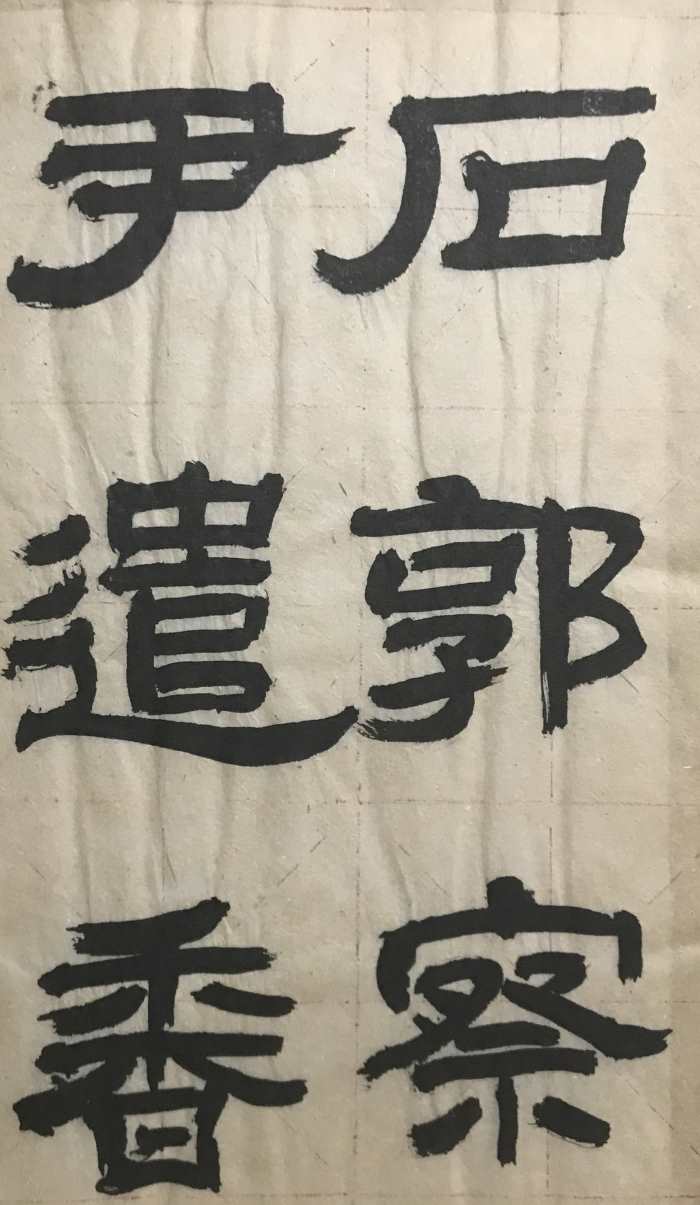 石郭察
尹遣香